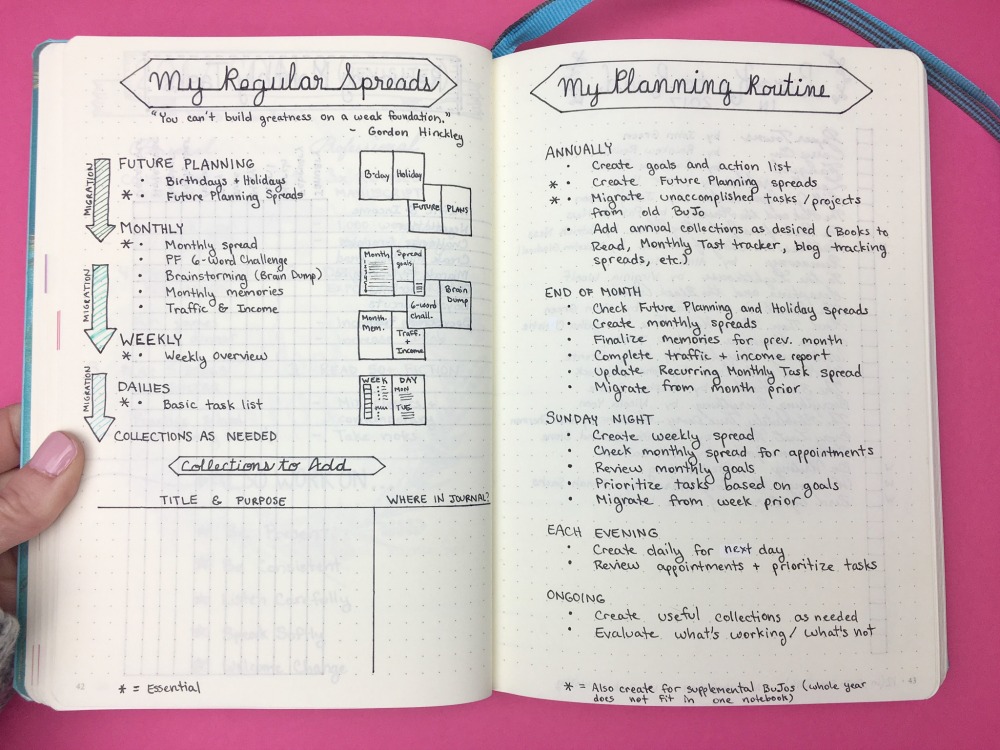 My Regular Spreads
"You can't build greatness on a weak foundation."
- Gordon Hinckley
MIGRATION
FUTURE PLANNING
• Birthdays + Holidays
* • Future Planning Spreads
MONTHLY
* • Monthly spread
• PF 6-Word Challenge
• Brainstorming (Brain Dump)
• Monthly memories
• Traffic & Income
MIGRATION
WEEKLY
* • Weekly overview
MIGRATION
DAILIES
* • Basic task list
COLLECTIONS AS NEEDED
B-day Holiday
FUTURE PLANS
Month Spread
goals
Brain
Dump
6-word
chall.
Month.
Mem.
Traff.
+
Income
WEEK DAY
MON
TUE
Collections to Add
TITLE & PURPOSE WHERE IN JOURNAL?
* = Essential
42
My Planning Routine
ANNUALLY
• Create goals and action list
* • Create Future Planning spreads
* • Migrate unaccomplished tasks / projects
from old BuJo
• Add annual collections as desired (Books to
Read, Monthly Tast tracker, blog tracking
spreads, etc.)
END OF MONTH
• Check Future Planning and Holiday spreads
• Create monthly spreads
• Finalize memories for prev. month
• Complete traffic + income report
• Update Recurring Monthly Task spread
• Migrate from month prior
SUNDAY NIGHT
• Create weekly spread
• Check monthly spread for appointments
• Review monthly goals
• Prioritize tasks based on goals
• Migrate from week prior
EACH EVENING
• Create daily for next day
• Review appointments + prioritize tasks
ONGOING
• Create useful collections as needed
• Evaluate what's working / what's not
* = Also create for supplemental BuJos (whole year
does not fit in one notebook)
43